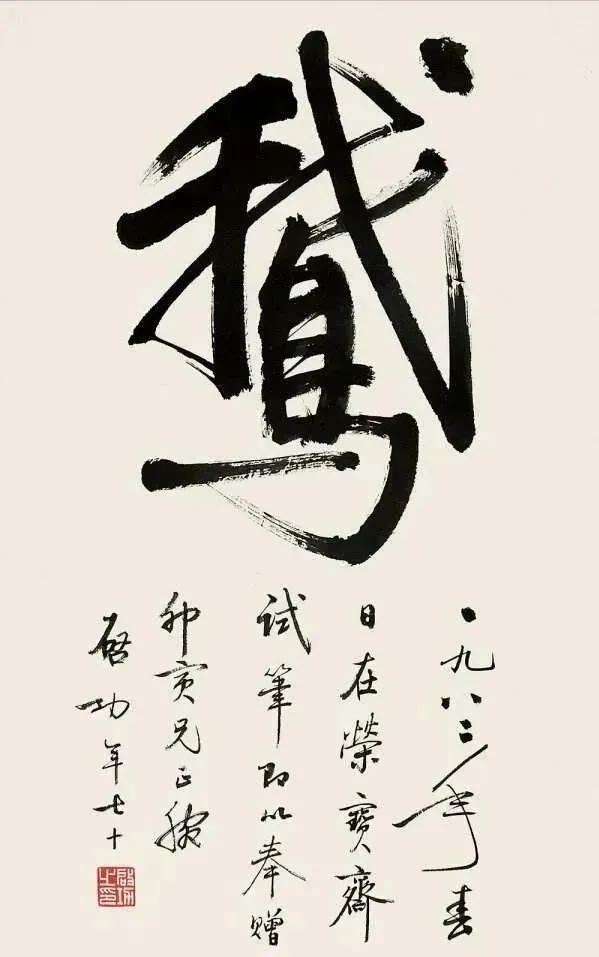 鵞
一九八二年春
日在榮寶齋
試筆即以奉贈
寅兄正腕
啓功年七十
啟功之印